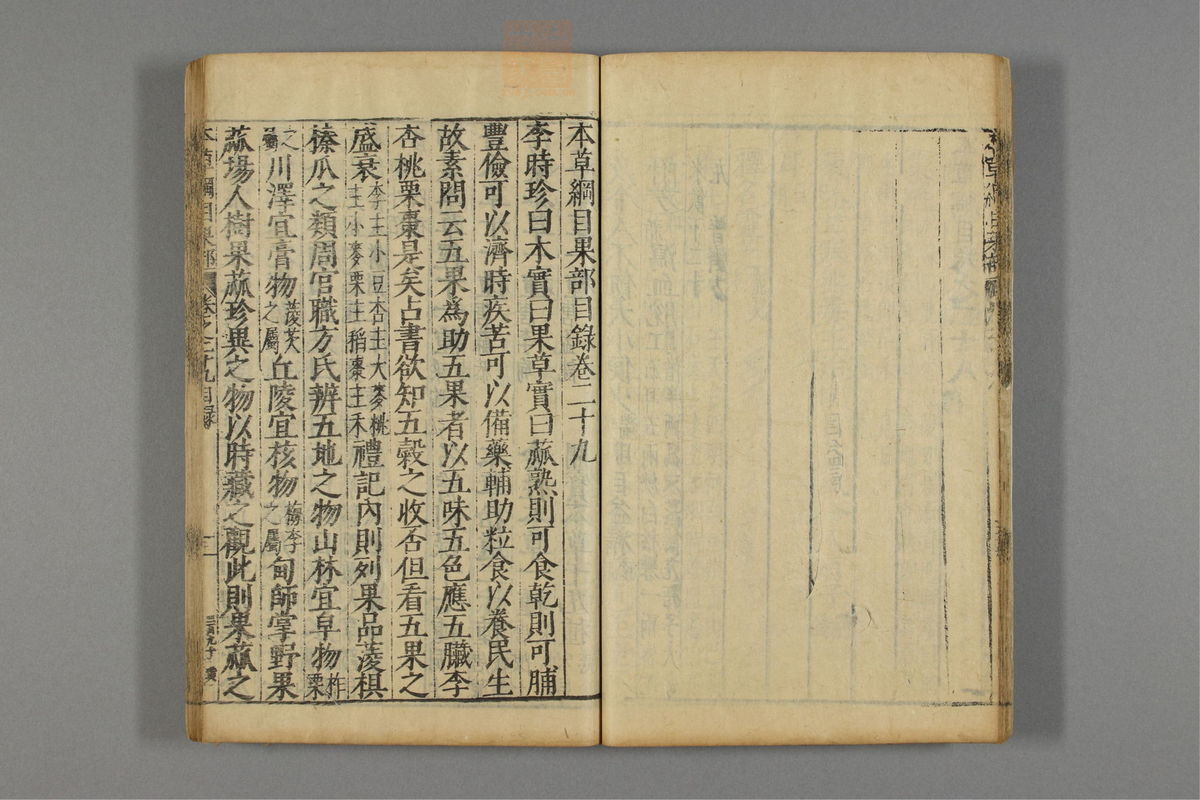 本草綱目果部目錄卷二十九
李時珍曰木實曰果草實曰蓏熟則可食乾則可脯
豐儉可以濟時疾苦可以備藥輔助粒食以養民生
故素問云五果爲助五果者以五味五色應五臟李
杏桃栗棗是矣占書欲知五穀之收否但看五果之
盛衰李主小豆杏主大麥桃主小麥栗主稻棗主禾禮記內則列果品菱椇
榛瓜之類周官職方氏辨五地之物山林宜皁物柞栗
之屬川澤宜膏物菱芡之屬丘陵宜核物梅李之屬甸師掌野果
蓏場人樹果蓏珍異之物以時藏之觀此則果蓏之
本草綱目果部 卷之二十九目録 一